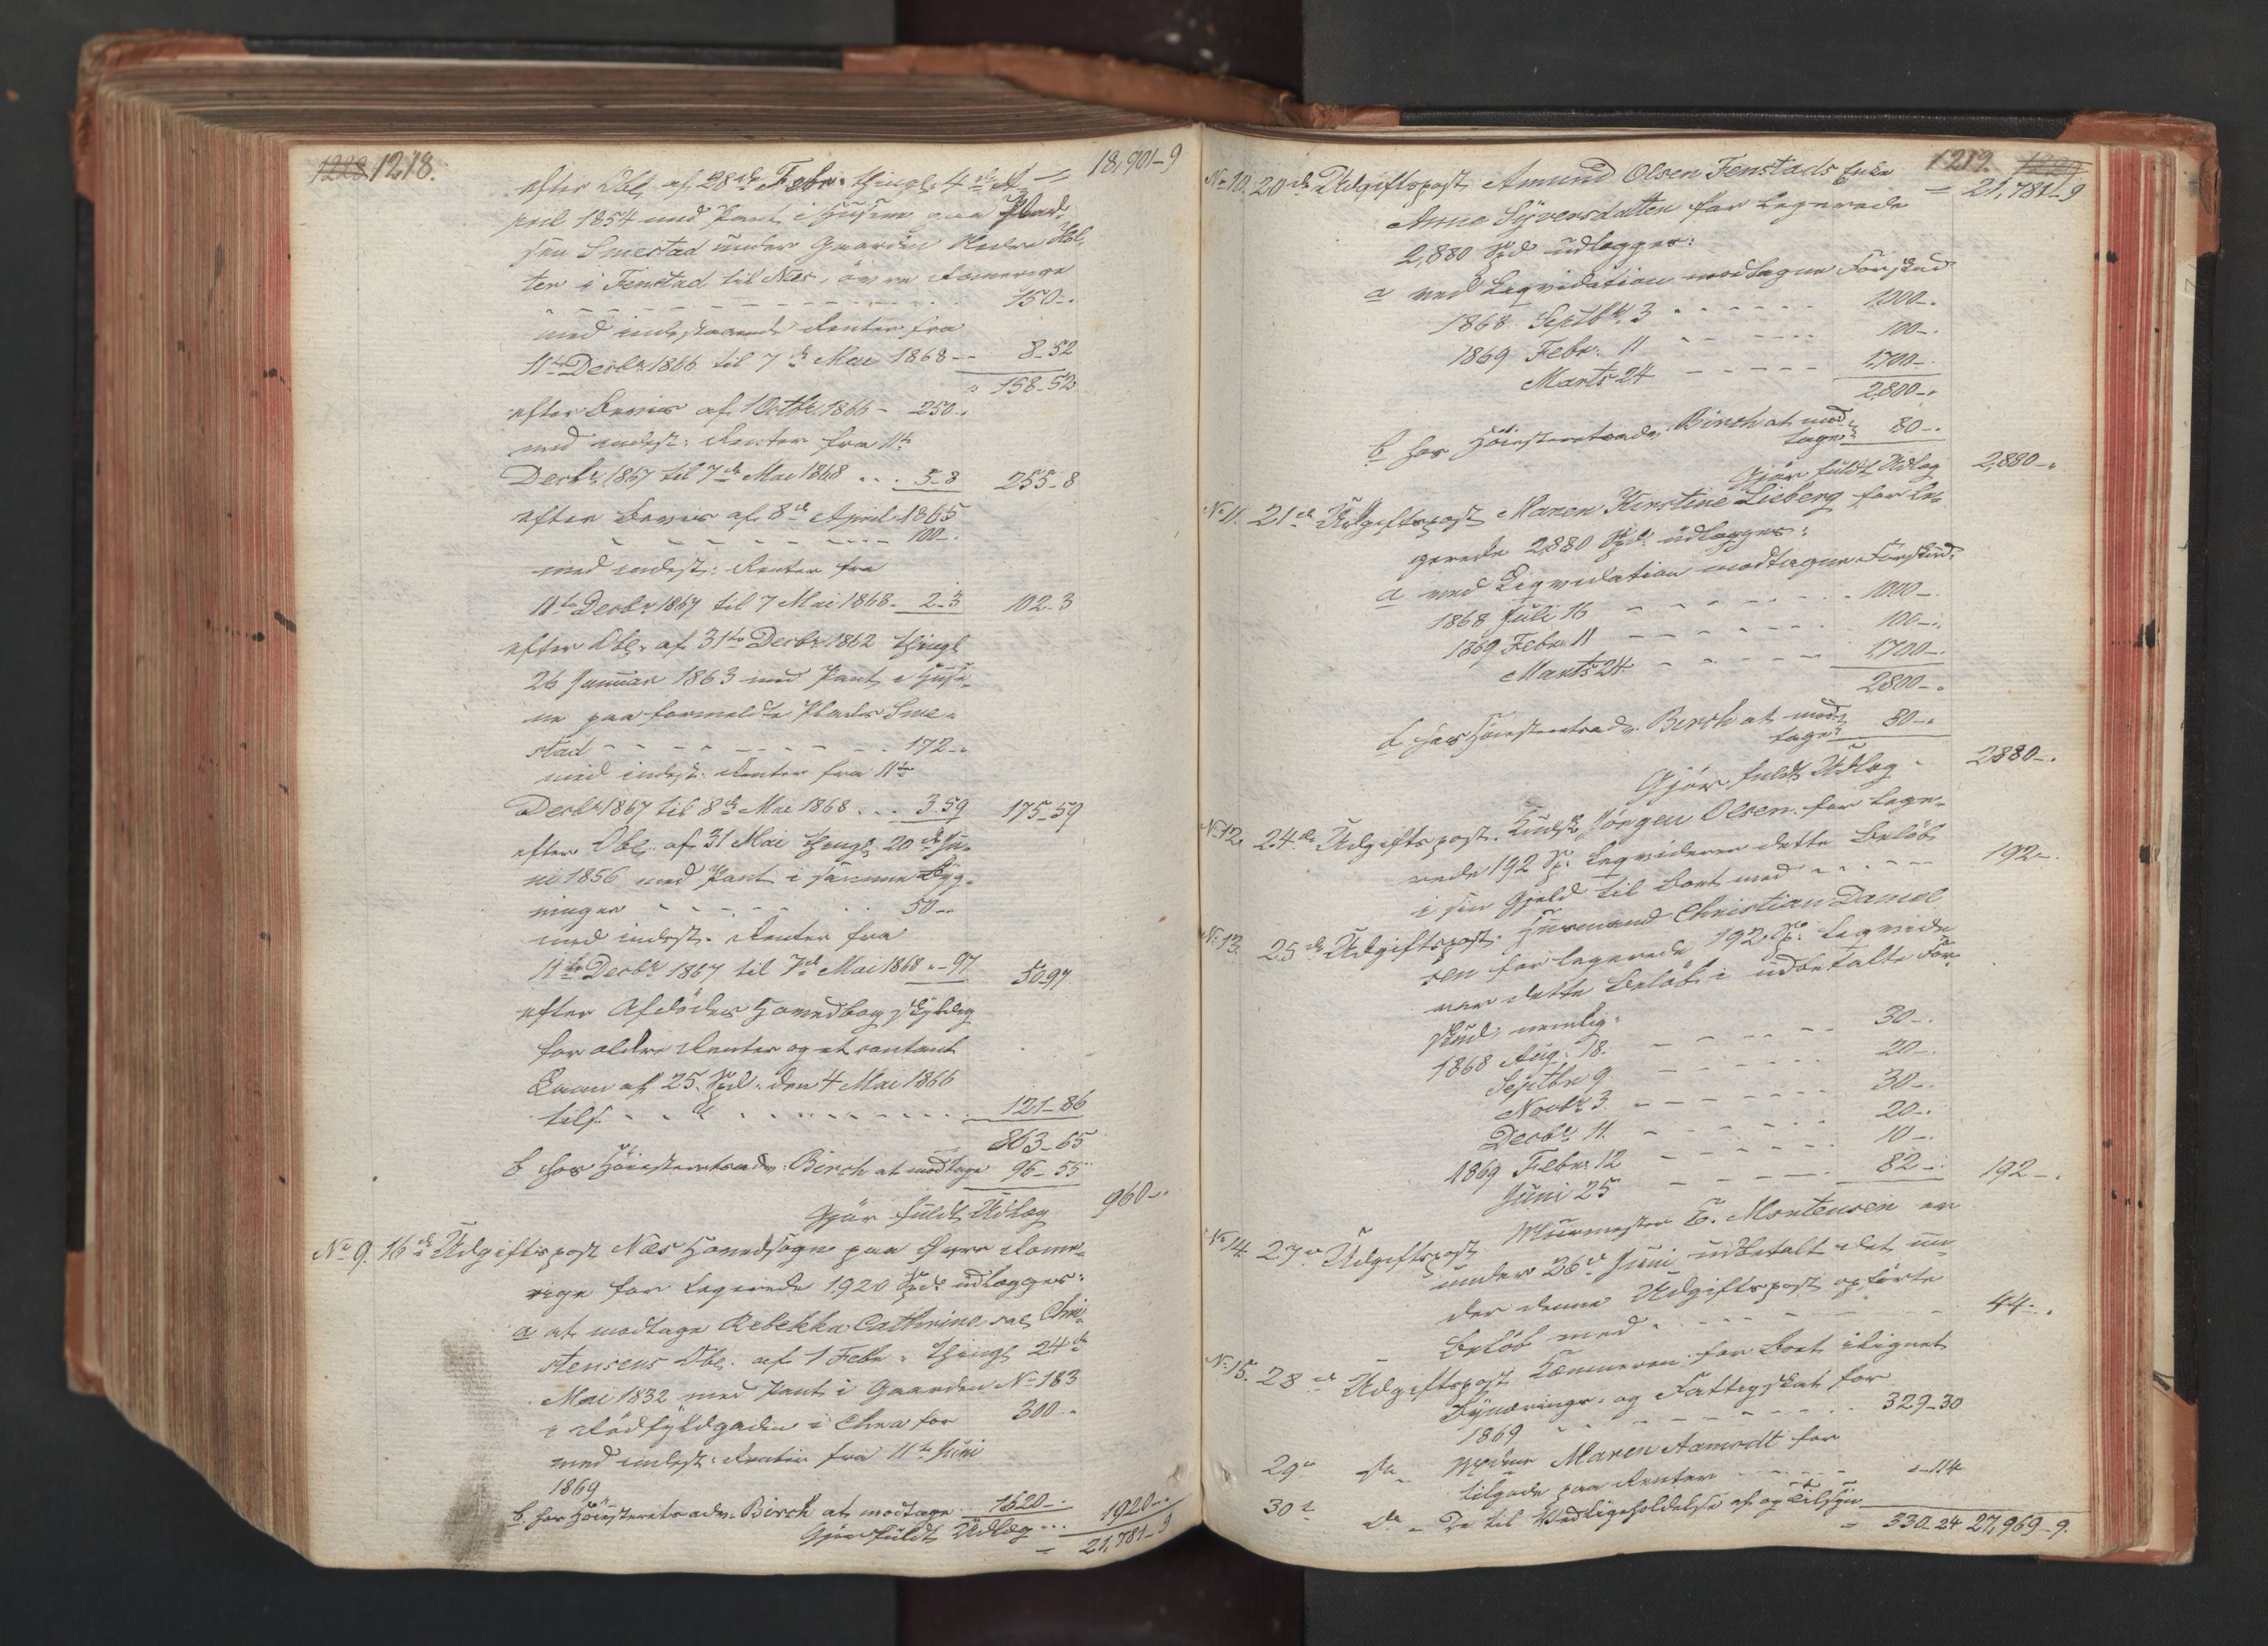 1228 1218.
efter Obl. af 28de Febr. thingl. 4de A- = 18,901-9
pril 1854 med Pant i Husene paa Plad-
sen Smestad under Gaarden Nedre Hol-
ter i Fenstad til Næs, övre Romerige
- - - - - - - - 150-.
med indestaaende Renter fra
11te Decbr 1866 til 7de Mai 1868 -- 8-52
" 158-52
efter Bevis af 1 Octbr. 1866 - 250-.
med indest: Renter fra 11te
Decbr. 1867 til 7de Mai 1868 . . . 5-8 255-8
efter Bevis af 8de April 1865
- - - - - - - - 100-.
med indest: Renter fra
11te Decbr. 1867 til 7 Mai 1868 - 2-3 102-3
efter Obl. af 31te Decbr. 1862 thingl
26 Januar 1863 med Pant i Huse-
ne paa formeldte Plads Sme-
stad - - - - - - - - 172-.
med indest. Renter fra 11te
Decbr 1867 til 8de Mai 1868 . . . 3-59 175-59
efter Obl. af 31 Mai thingl. 20de Ju-
ni 1856 med Pant i samme Byg-
ninger - - - - - - 50-.
med indest. Renter fra
11te Decbr. 1867 til 7de Mai 1868 " - 97 50-97
efter Afdödes Hovedbog skyldig
for ældre Renter og et contant
Laan af 25 Spd. den 4 Mai 1866
tils. - - - - - - - - 121-86
863-65
b hos Höiesteretsadv. Birch at modtage 96-55
Gjör fuldt Udlæg 960-.
No 9. 16de Udgiftspost Næs Hovedsogn paa Övre Rome-
rige for legerede 1920 Spd. udlægges:
a at modtage Rebekka Cathrine sal. Chri-
stensens Obl. af 1 Febr. thingl 24de
Mai 1832 med Pant i Gaarden No 183
i Rödfyldgaden i Chra for 300-.
med indest. Renter fra 11te Juni
1869
b. hos Höiesterets adv. Birch at modtage .. 1620-. 1920-.
Gjör fuldt Udlæg ... = 21,781-9
1219. 1229
No 10. 20de Udgiftspost Amund Olsen Fenstads Enke = 21,781-9
Anne Syversdatter for legerede
2,880 Spd udlægges:
a ved Liqvidation modtagne Forskud
1868 Septbr. 3 - - - - - - 1000-.
1869 Febr. 11 - - - - - 100-.
Marts 24 - - - - - 1700-.
2,800-.
b hos Höiesteretsadv. Birch at mod-
tage 80-.
Gjör fuldt Udlæg 2,880-.
No 11. 21de Udgiftspost Maren Kirstine Lieberg for le-
gerede 2880 Spd. udlægges:
a ved Liqvidation modtagne Forskud.
1868 Juli 16 - - - - - - - 1000-.
1869 Febr. 11 - - - - - - 100-.
Marts 24. - - - - - - 1700-.
2800-.
b hos Höiesteretsadv. Birch at mod-
tage 80-.
Gjör fuldt Udlæg - 2880-.
No 12. 24de Udgiftspost. Kudsk Jörgen Olsen for lege-
rede 192 Sp. liqviderer dette Belöb
i sin Gjeld til Boet med - - - - - 192-.
No 13. 25de Udgiftspost. Husmand Christian Daniel
sen for legerede 192 Sp. liqvide
rer dette Belöb i udbetalte For-
skud nemlig:
1868 Aug. 18. - - - - - - 30-.
Septbr 9 - - - - - - 20-.
Novbr. 3 - - - - - - 30-.
Decbr. 11. - - - - - - 20-.
1869 Febr. 12 - - - - - - 10-.
Juni 25 - - - - - - 82-. 192-.
No 14. 27de Udgiftspost Muurmester E. Mortensen er
under 26de Juni udbetalt det un-
der denne Udgiftspost opförte
Belöb med - - - - - - - 44-.
No 15. 28de Udgiftspost Kæmneren for Boet ilignet
Fynærings. og Fattigskat for
1869 - - - - - - - - - 329-30
29de do. Madme Maren Aamodt for
tilgode paa Renter - - - - - "-114
30te do - Do til Vedligeholdelse af og Tilsyn
= 330-24 27,969-9.